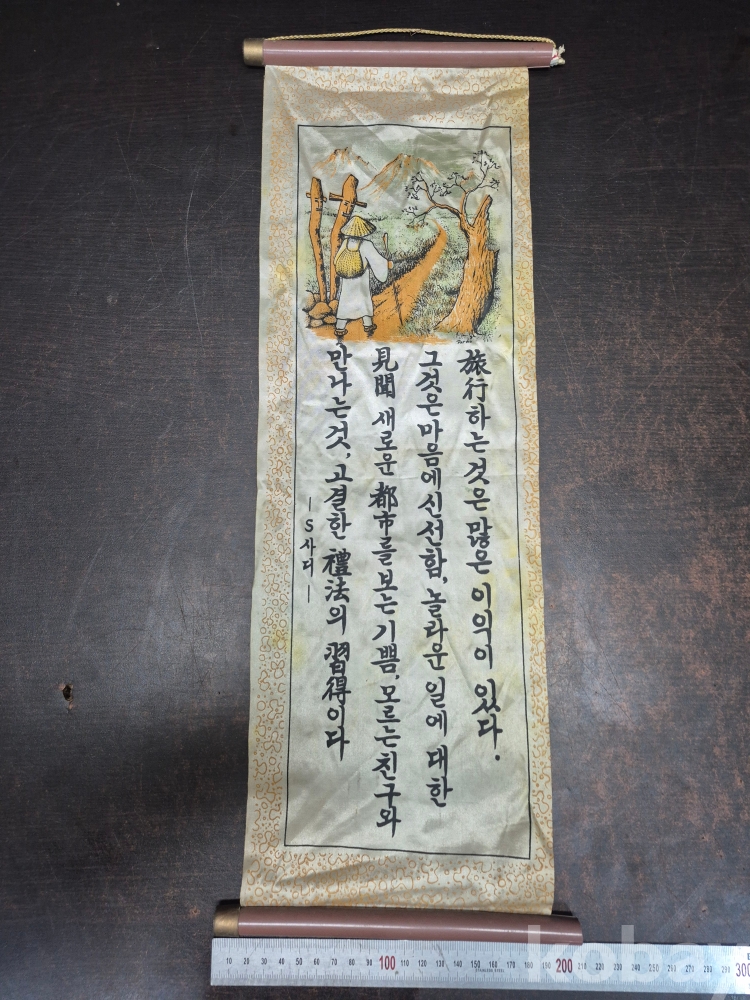 旅行하는 것은 많은 이익이 있다.
그것은 마음에 신선함, 놀라운 일에 대한
見聞 새로운 都市를 보는 기쁨, 모르는 친구와
만나는것, 고결한 禮法의 習得이다
—S 사디—
10 20 30 40 50 60 70 80 90 100 110 120 130 140 150 160 170 180 190 200 210 220 230 240 250 260 270 280 290 300
STAINLESS STEEL
kobay